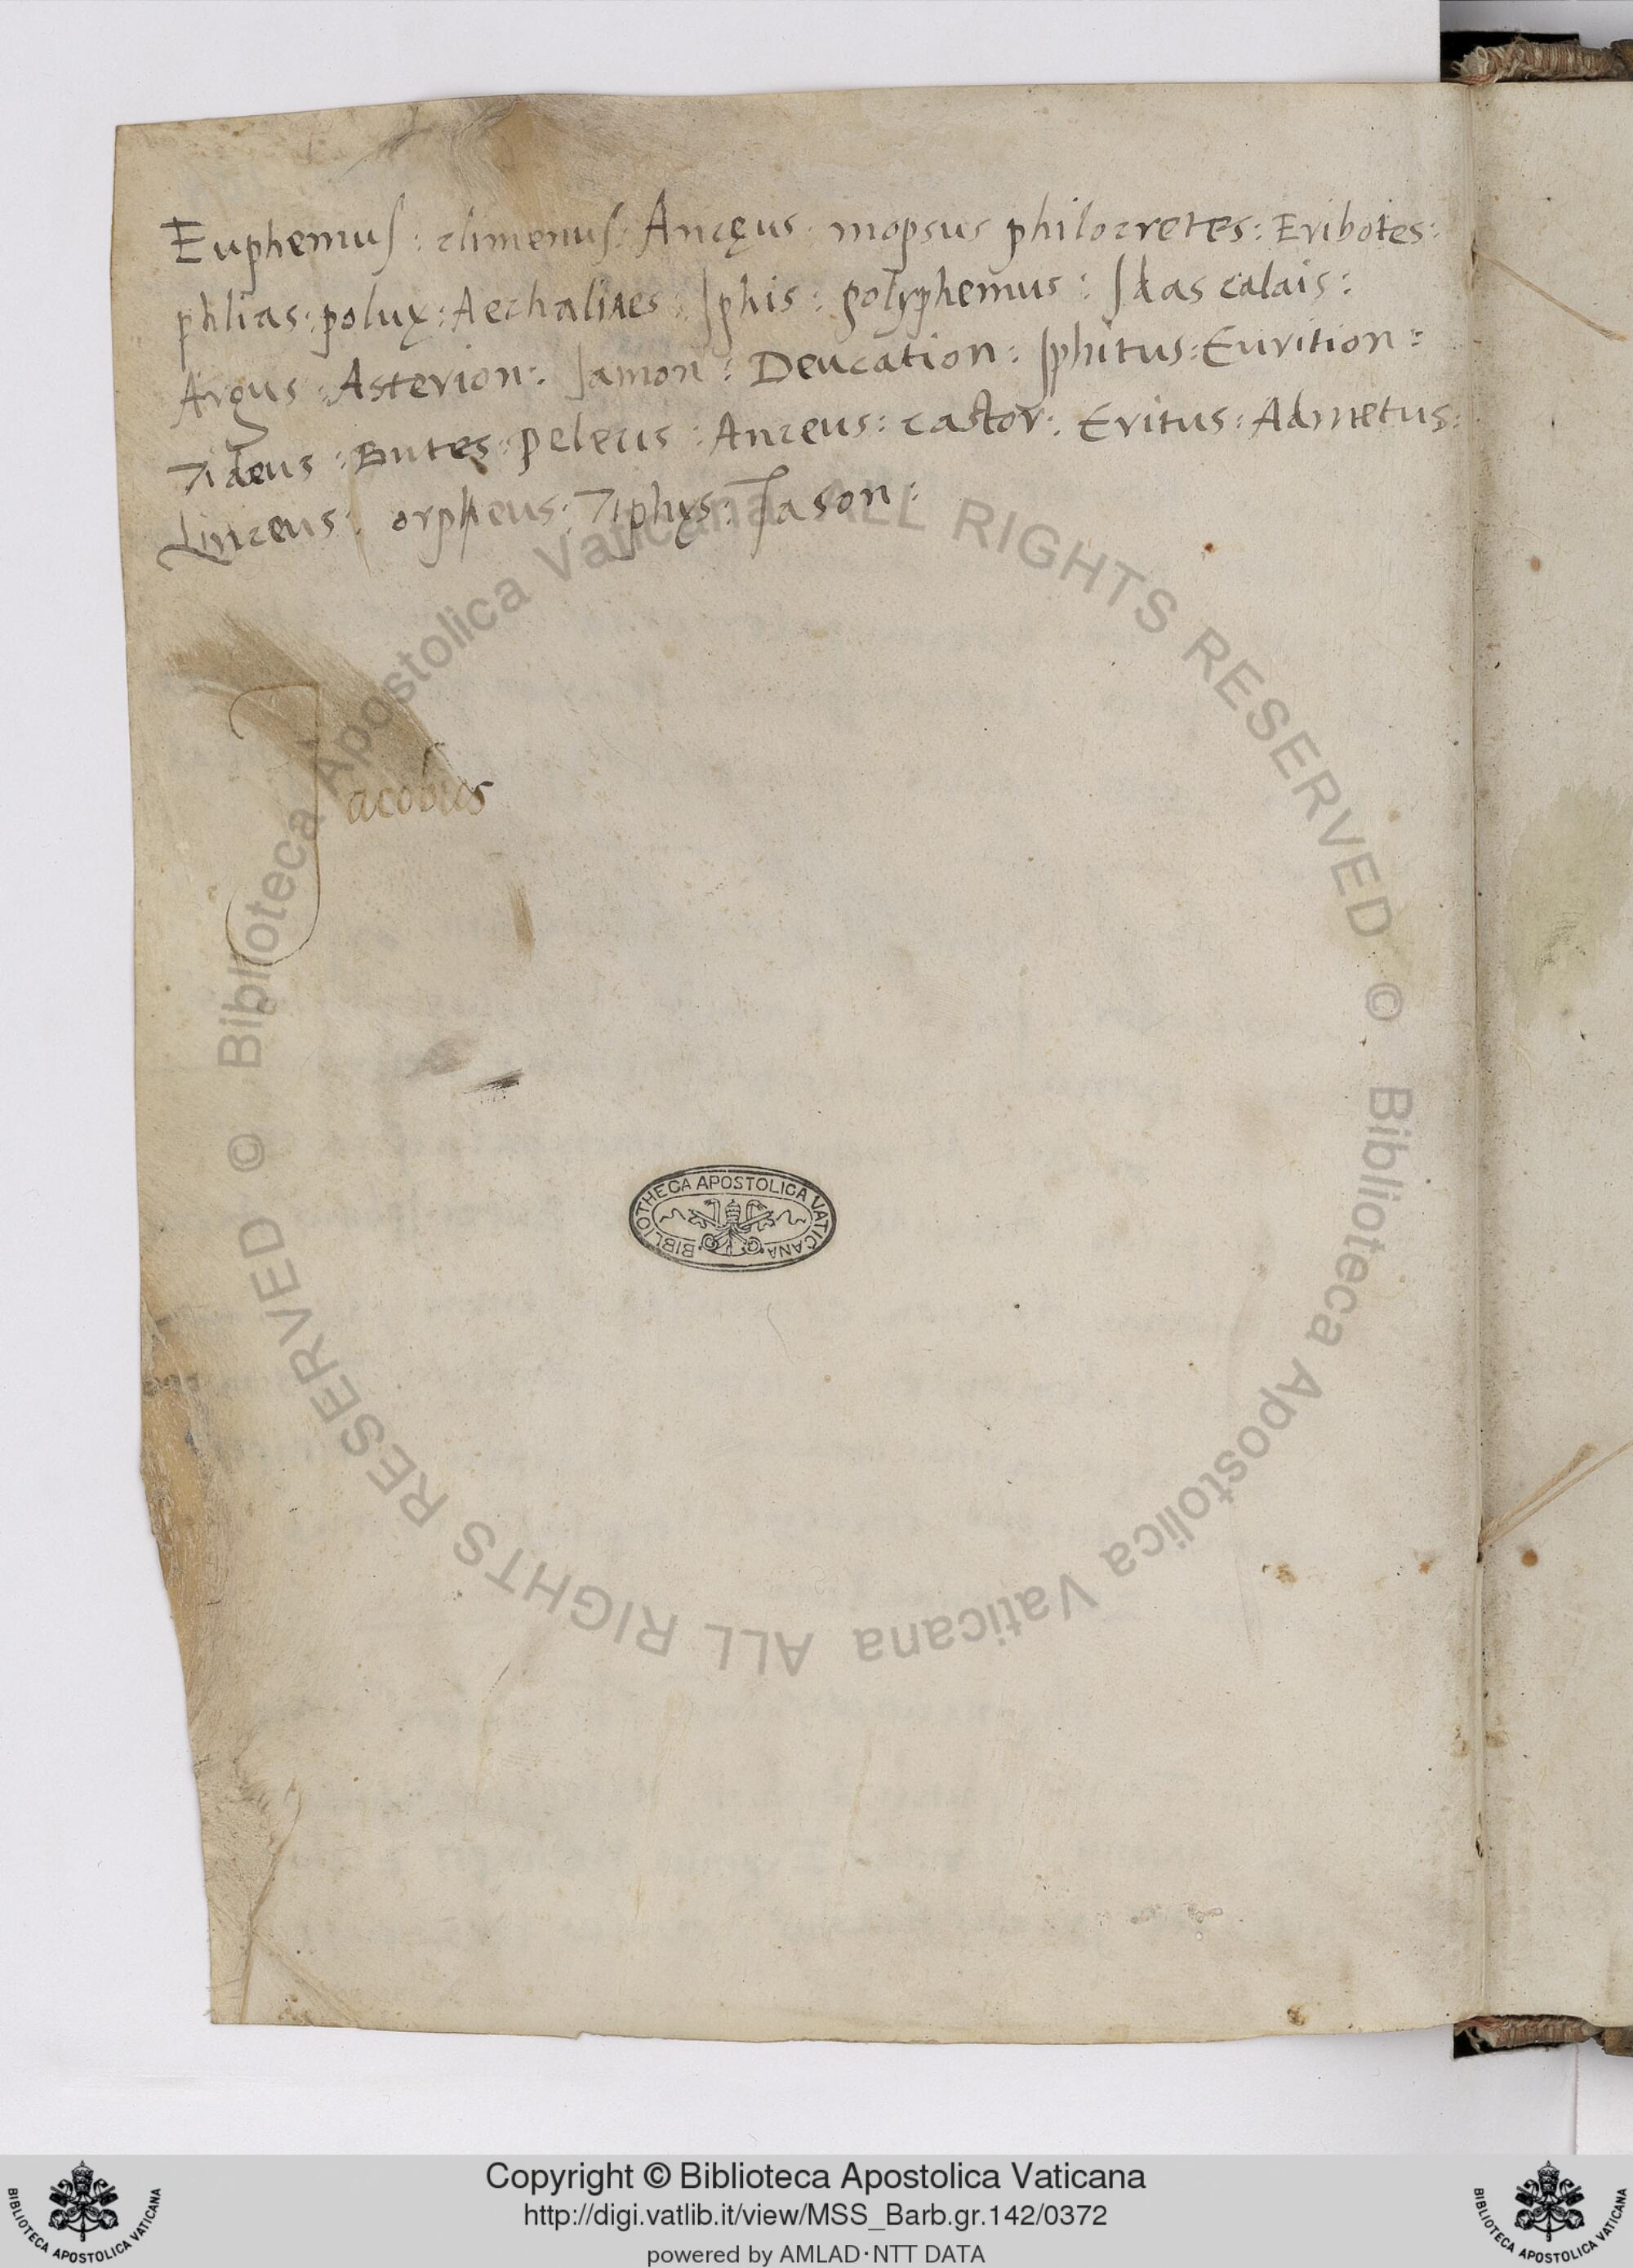 Euphemuſ : climenuſ : Ancęus : mopsus philocretes : Eribotes :
phlias : polux : Aechalides : Iphis : polyphemus : Idas calais :
Argus : Asterion : Iamon : Deucation : Iphitus : Eurition :
Tideus : Butes : peleus : Anceus : castor : Eritus : Admetus :
Linceus : orpheus : Tiphys : Iason :
Jacobus
BIBLIOTHECA APOSTOLICA VATICANA
© Biblioteca Apostolica Vaticana ALL RIGHTS RESERVED © Biblioteca Apostolica Vaticana ALL RIGHTS RESERVED
Copyright © Biblioteca Apostolica Vaticana
http://digi.vatlib.it/view/MSS_Barb.gr.142/0372
powered by AMLAD·NTT DATA
BIBLIOTECA APOSTOLICA VATICANA
BIBLIOTECA APOSTOLICA VATICANA